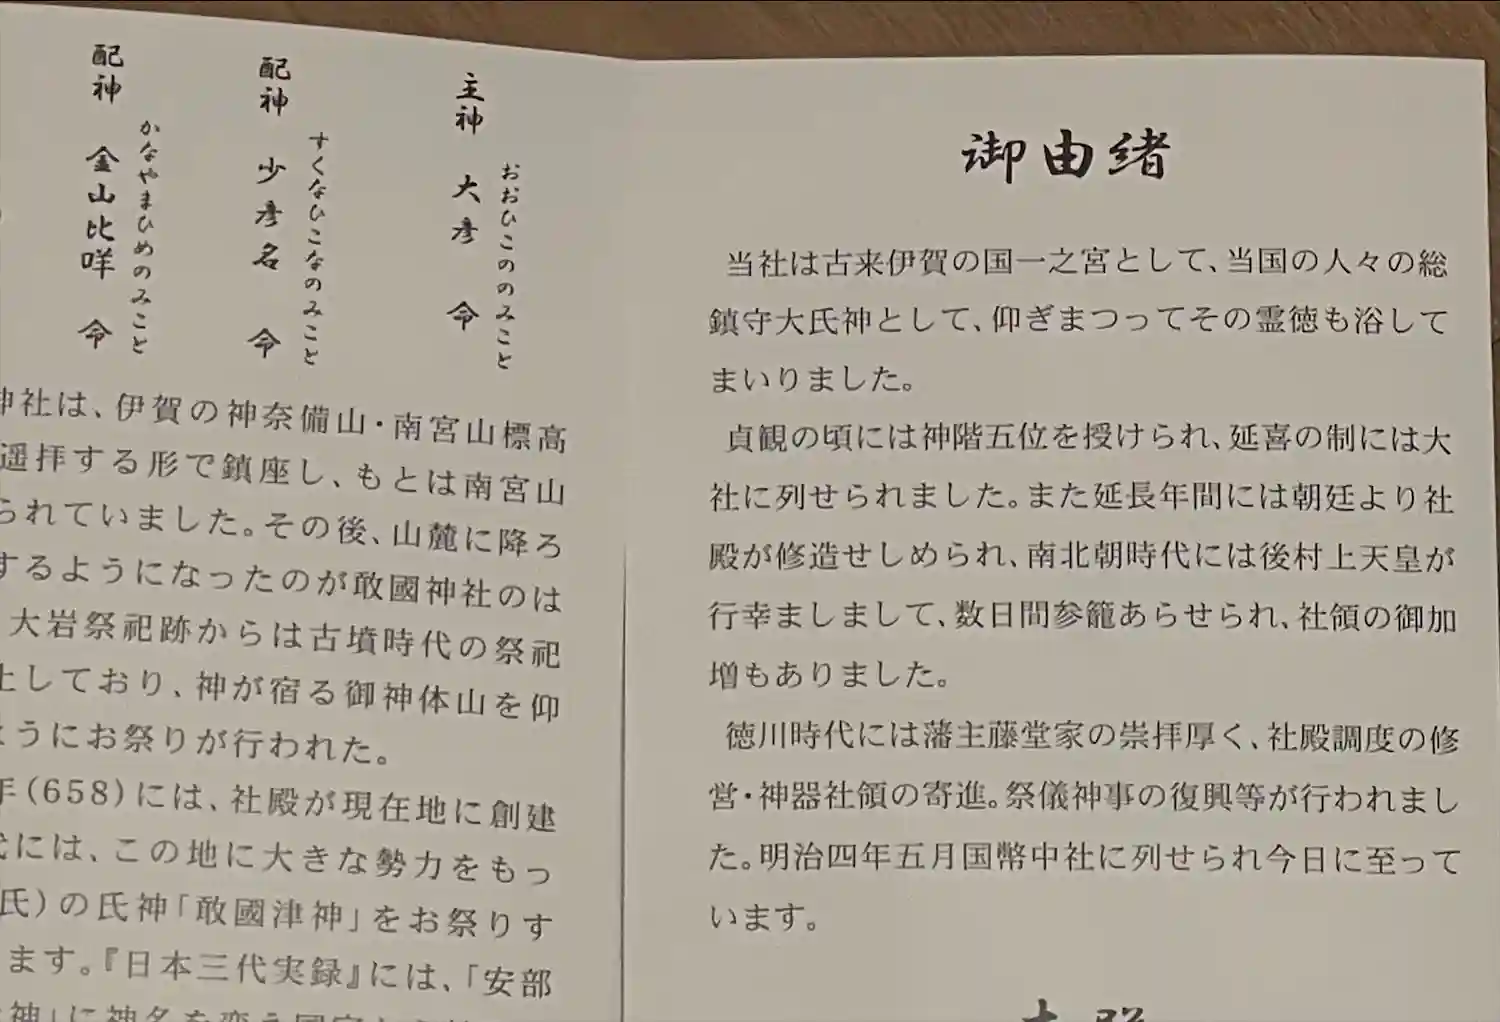 主神 大彦 命
おおひこののみこと
配神 少彦名 命
すくなひこなのみこと
配神 金山比咩 命
かなやまひめのみこと
神社は、伊賀の神奈備山・南宮山標高
遥拝する形で鎮座し、もとは南宮山
られていました。その後、山麓に降ろ
するようになったのが敢國神社のは
大岩祭祀跡からは古墳時代の祭祀
しており、神が宿る御神体山を仰
ようにお祭りが行われた。
年(658)には、社殿が現在地に創建
には、この地に大きな勢力をもっ
氏)の氏神「敢國津神」をお祭りす
ます。『日本三代実録』には、「安部
御由緒
当社は古来伊賀の国一之宮として、当国の人々の総
鎮守大氏神として、仰ぎまつってその霊徳も浴して
まいりました。
貞観の頃には神階五位を授けられ、延喜の制には大
社に列せられました。また延長年間には朝廷より社
殿が修造せしめられ、南北朝時代には後村上天皇が
行幸ましまして、数日間参籠あらせられ、社領の御加
増もありました。
徳川時代には藩主藤堂家の崇拝厚く、社殿調度の修
営・神器社領の寄進。祭儀神事の復興等が行われまし
た。明治四年五月国幣中社に列せられ今日に至って
います。